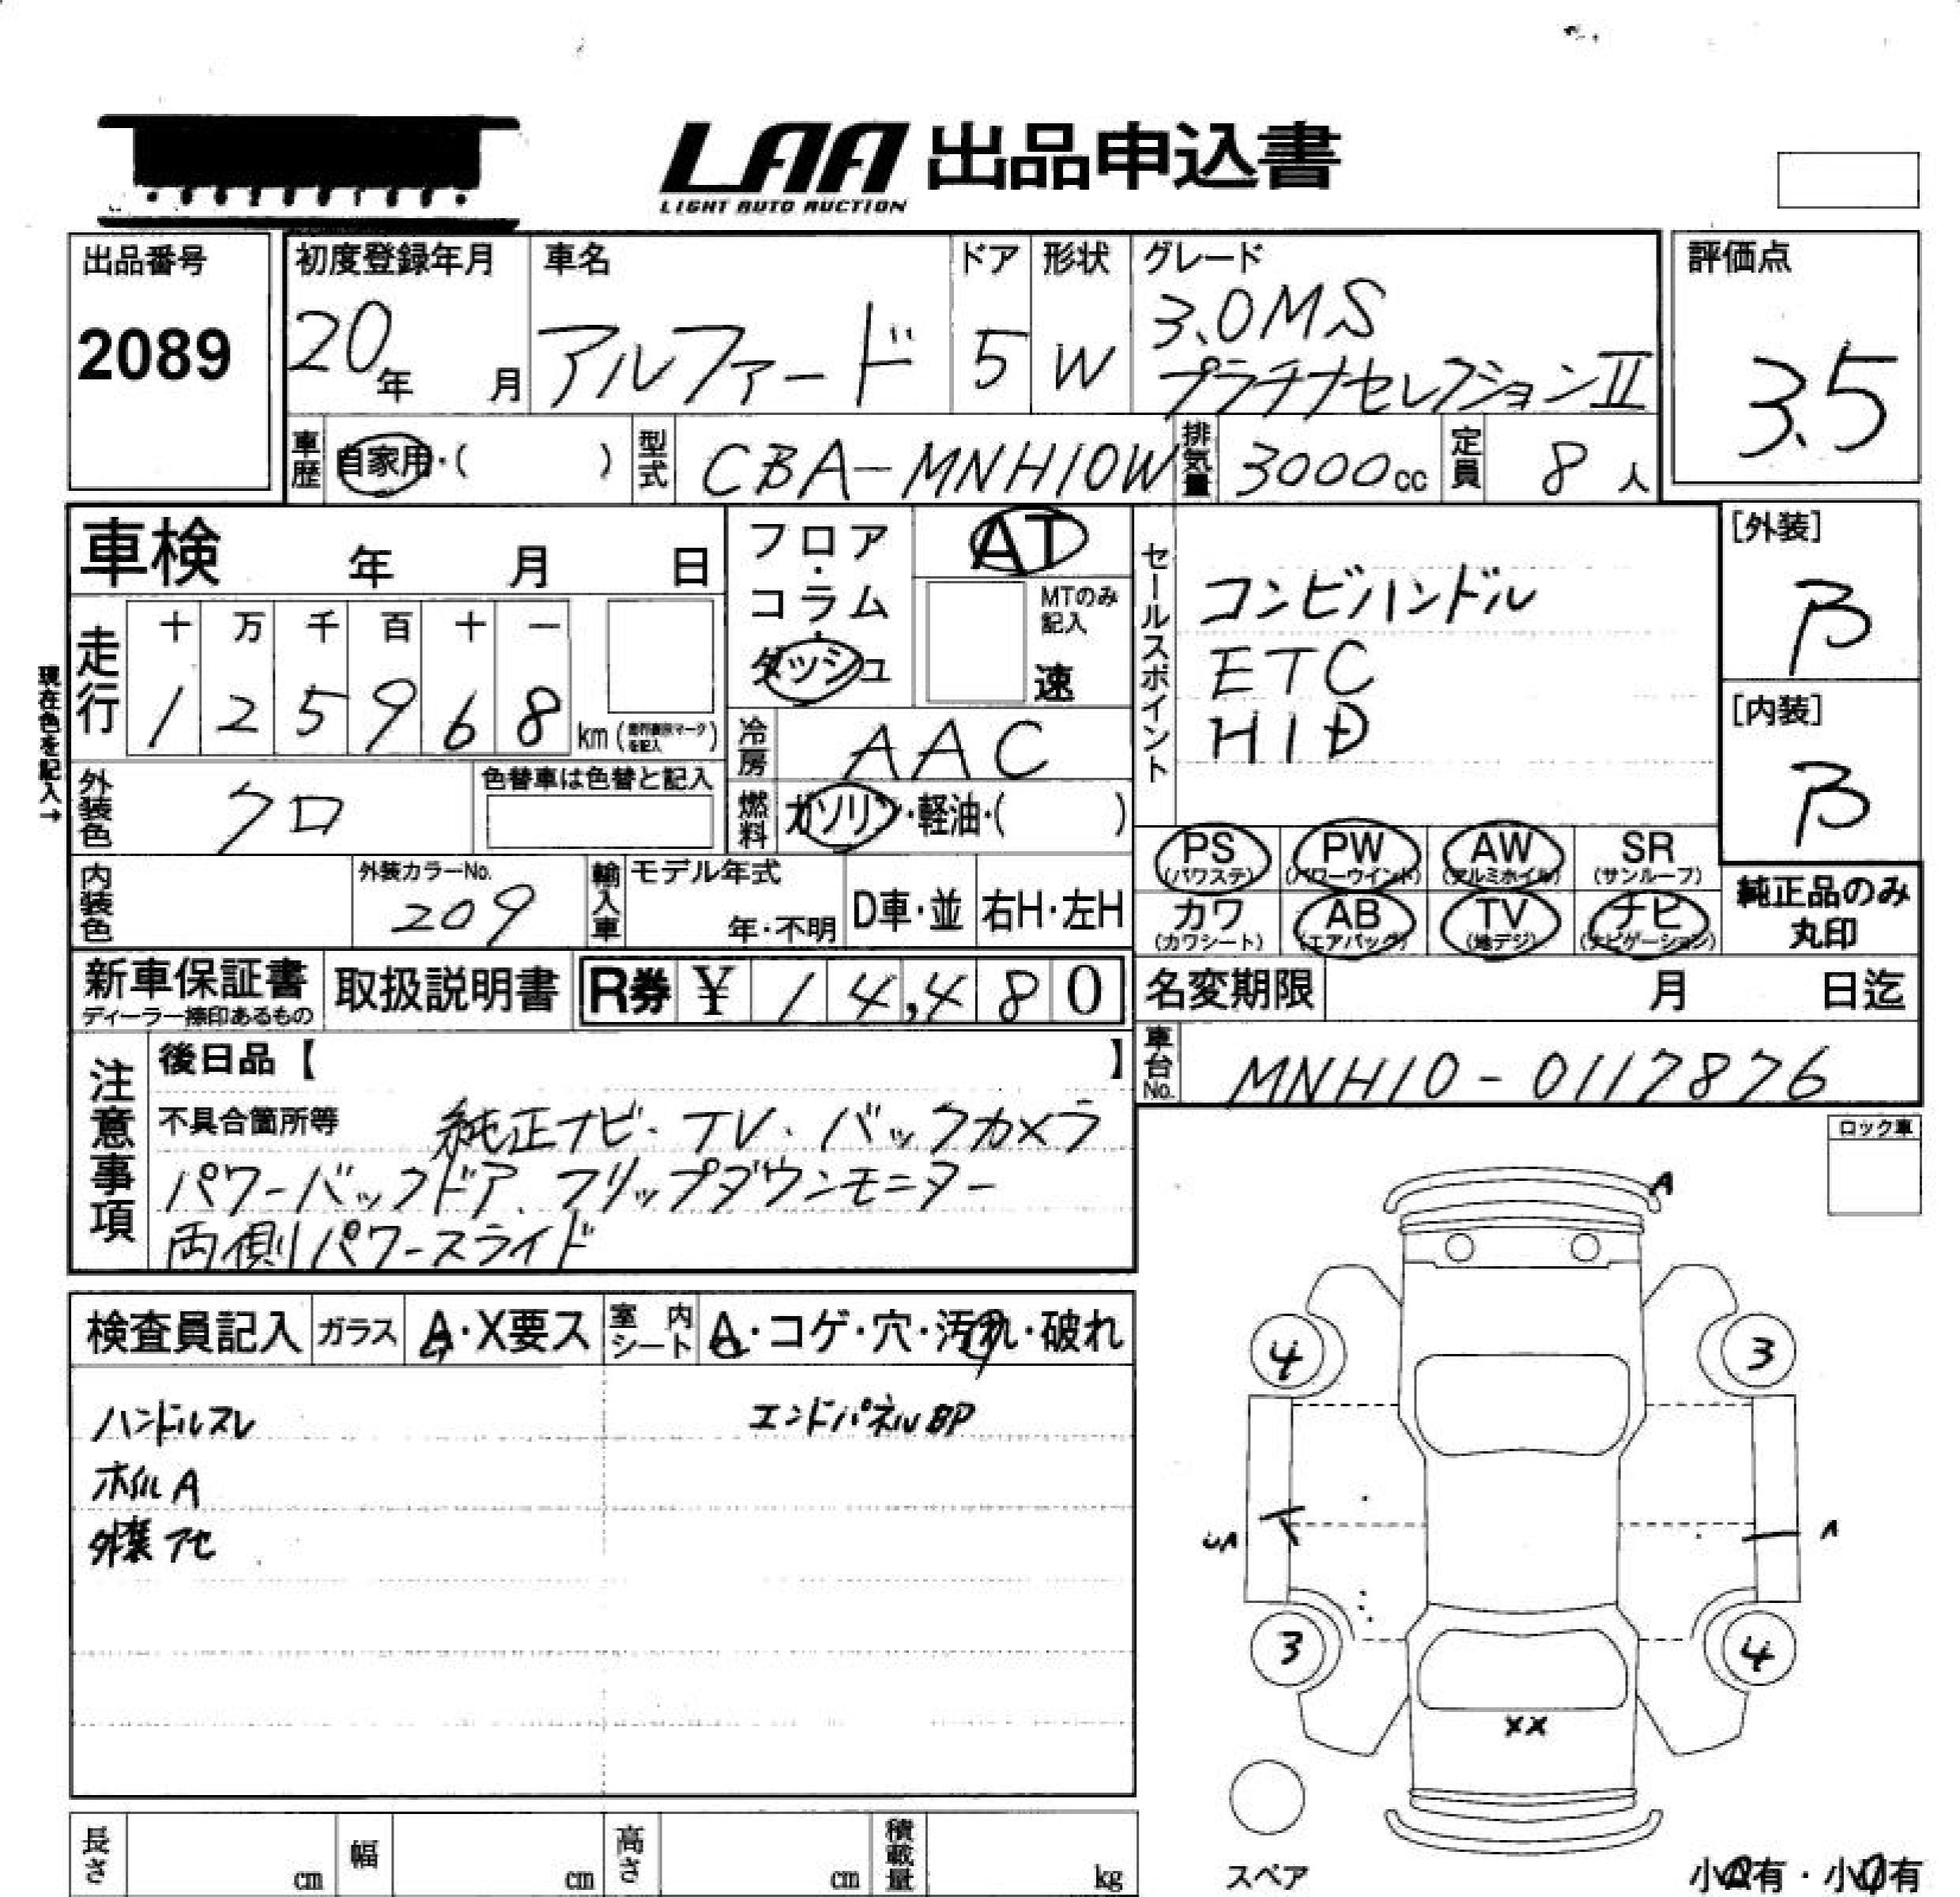 LAA 出品申込書
LIGHT AUTO AUCTION
出品番号
2089
初度登録年月
20年 月
車名
アルファード
ドア
5
形状
W
グレード
3.0MS
プラチナセレクションII
評価点
3.5
車歴 自家用・( )
型式 CBA-MNH10W
排気量 3000cc
定員 8人
車検 年 月 日
走行
十 万 千 百 十 一
1 2 5 9 6 8 km
現在色を記入→
フロア・コラム・ダッシュ
AT
MTのみ記入
速
冷房 AAC
燃料 ガソリン・軽油・( )
セールスポイント
コンビハンドル
ETC
HID
[外装]
B
[内装]
B
外装色 クロ
色替車は色替と記入
内装色
外装カラーNo.
209
輸入車
モデル年式
年・不明
D車・並
右H・左H
PS (パワステ)
PW (パワーウインド)
AW (アルミホイル)
SR (サンルーフ)
カワ (カワシート)
AB (エアバッグ)
TV (地デジ)
ナビ (ナビゲーション)
純正品のみ
丸印
新車保証書
ディーラー捺印あるもの
取扱説明書
R券 ¥ 14,480
名変期限 月 日迄
車台No. MNH10-0117876
注意事項
後日品【 】
不具合箇所等 純正ナビ・TV・バックカメラ
パワーバックドア、フリップダウンモニター
両側パワースライド
ロック車
検査員記入
ガラス A・X要ス
室内シート A・コゲ・穴・汚れ・破れ
ハンドルスレ
エンドパネルBP
ホイルA
外装アセ
A
4
3
UA
A
3
4
XX
スペア
長さ cm
幅 cm
高さ cm
積載量 kg
小A有・小U有